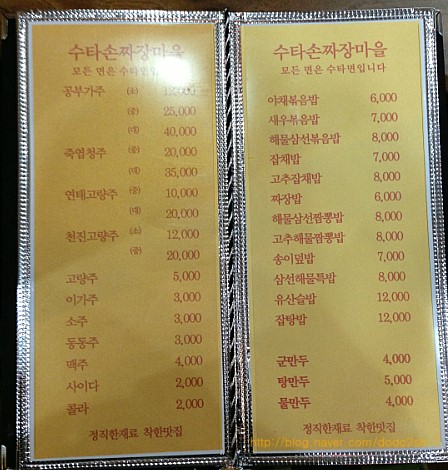 수타손짜장마을
모든 면은 수타면입니다
공부가주 (소) 12,000
(중) 25,000
(대) 40,000
죽엽청주 (중) 20,000
(대) 35,000
연태고량주 (중) 10,000
(대) 20,000
천진고량주 (소) 12,000
(중) 20,000
고량주 5,000
이가주 3,000
소주 3,000
동동주 3,000
맥주 4,000
사이다 2,000
콜라 2,000
정직한재료 착한맛집
수타손짜장마을
모든 면은 수타면입니다
야채볶음밥 6,000
새우볶음밥 7,000
해물삼선볶음밥 8,000
잡채밥 7,000
고추잡채밥 8,000
짜장밥 6,000
해물삼선짬뽕밥 8,000
고추해물짬뽕밥 8,000
송이덮밥 7,000
삼선해물특밥 8,000
유산슬밥 12,000
잡탕밥 12,000
군만두 4,000
탕만두 5,000
물만두 4,000
정직한재료 착한맛집